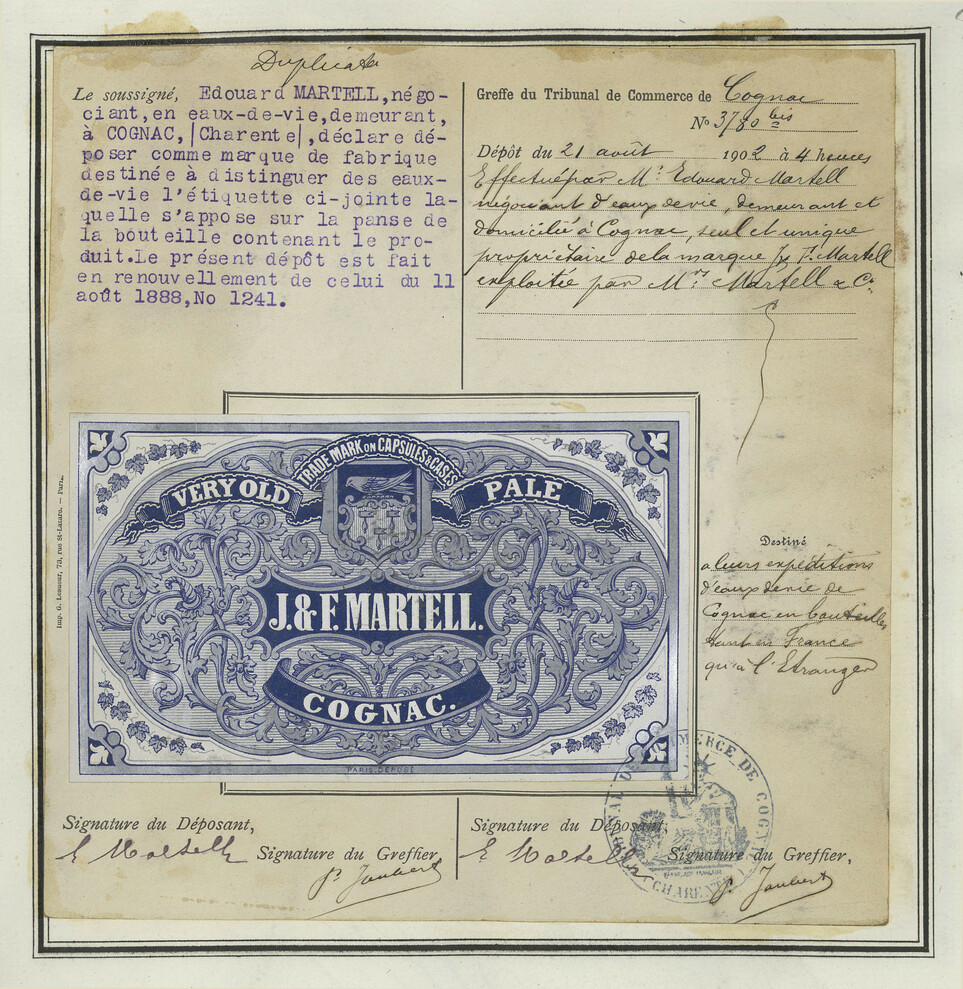 Duplicata
Le soussigné, Edouard MARTELL,négo-
ciant,en eaux-de-vie,demeurant,
à COGNAC,|Charente|,déclare dé-
poser comme marque de fabrique
destinée à distinguer des eaux-
de-vie l'étiquette ci-jointe la-
quelle s'appose sur la panse de
la bouteille contenant le pro-
duit.Le présent dépôt est fait
en renouvellement de celui du 11
août 1888,No 1241.
Greffe du Tribunal de Commerce de Cognac
No 3780 bis
Dépôt du 21 août 1902 à 4 heures
Effectué par Mr. Edouard Martell
négociant d'eaux de vie, demeurant et
domicilié à Cognac, seul et unique
propriétaire de la marque J & F. Martell
exploitée par Mrs Martell & Co.
TRADE MARK ON CAPSULES & CASES
VERY OLD PALE
J. & F. MARTELL.
COGNAC.
PARIS. DÉPOSÉ
Imp. G. Lesueur, 73, rue St-Lazare. — Paris.
Destiné
a leurs expéditions
d'eaux de vie de
Cognac en bouteilles
tant en France
qu'à l'Etranger
TRIBUNAL DE COMMERCE DE COGNAC
CHARENTE
Signature du Déposant,
E Martell
Signature du Greffier,
P. Joubert
Signature du Déposant,
E Martell
Signature du Greffier,
P. Joubert